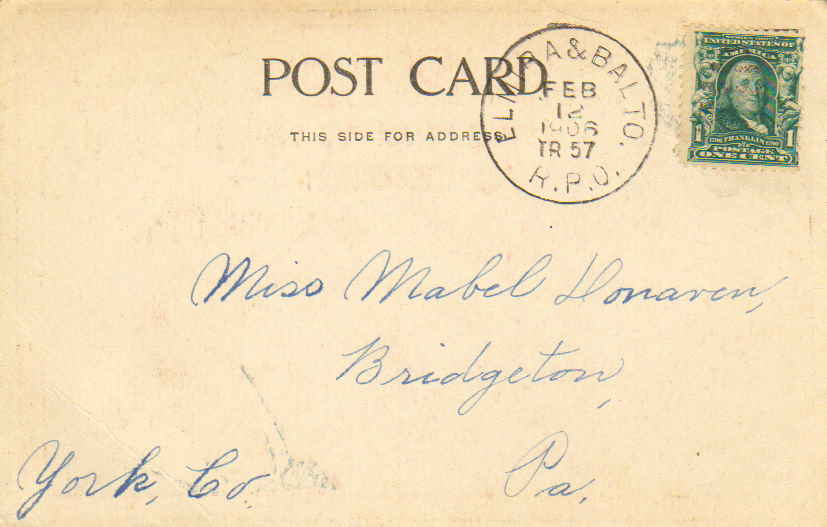 POST CARD
THIS SIDE FOR ADDRESS.
ELMIRA & BALTO.
FEB
12
1906
TR 57
R.P.O.
UNITED STATES OF
AMERICA
1 FRANKLIN 1
POSTAGE
ONE CENT
Miss Mabel Donaven,
Bridgeton,
York, Co. Pa.